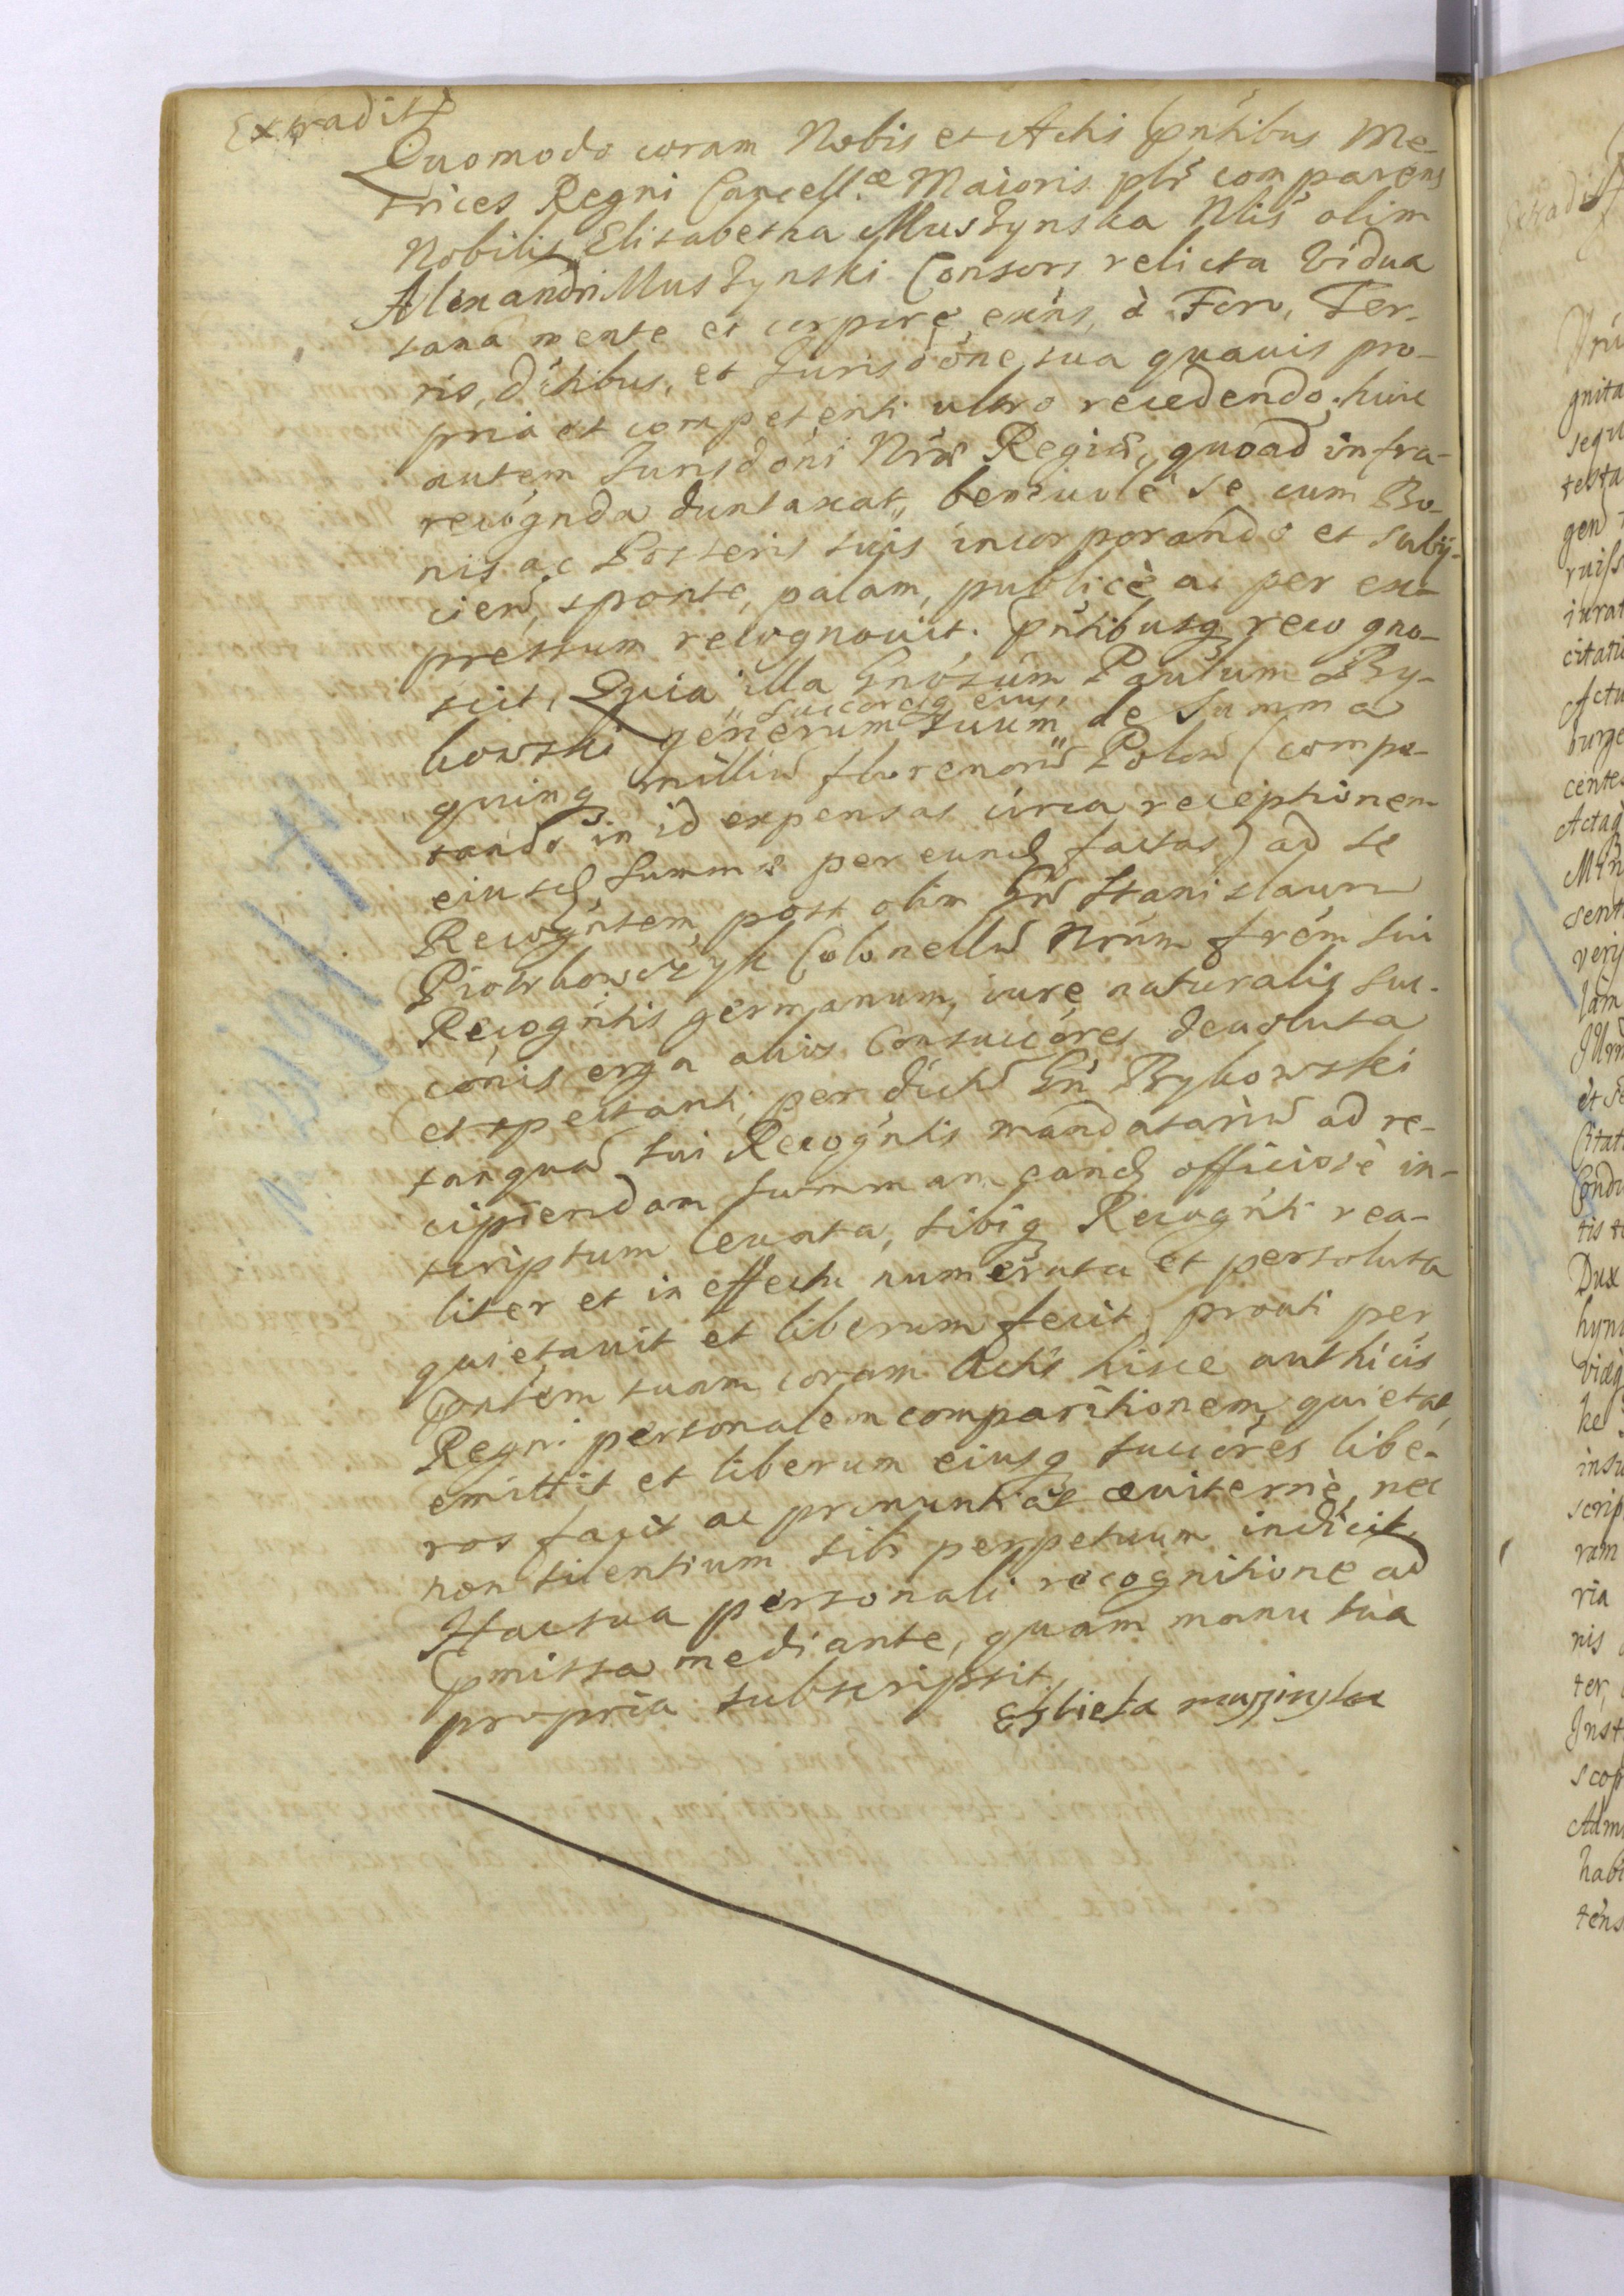 Extradit
Quomodo coram Nobis et Actis pñtibus Me-
trices Regni Cancell.æ Maioris plr̃ comparens
Nobilis Elisabetha Muszynska Nlis olim
Alexandri Muszynski Consors relicta Vidua
sana mente et corpore exñs, à Foro, Ter-
ris, dictibus, et Jurisdõne sua quauis pro-
pria et competenti ultro recedendo, huic
autem Jurisdõni Nrãe Regiæ, quoad infra-
recognda duntaxat, beneuole se cum Bo-
nis ac Posteris suis incorporando et subij-
ciend, sponte, palam, publicè ac per ex-
pressum recognouit. pñtibusq recogno-
scit, Quia illa Gnõsum Paulum Ry-
succoresq eius,
bowski generum suum de Summa
quinq milliũ florenorũ Poloñ (compu-
tando in id expensas circa receptionem
eiusd Summæ per eund factas) ad se
Recogñtem, post olim Gñ Stanislaum
Piotrkowczyk Colonellũ Nrũm frẽm sui
Recogñtis germanum, iure naturalis suc-
cõnis erga alios Consuccõres deuoluta
et spectanti, per dictũ Gñ Rybowski
tanquã sui Recogñtis mandatariũ ad re-
cipiendam Summam eand officiosè in-
scriptum leuata, sibiq Recogñti rea-
liter et in effectu numerata et persoluta
quietauit et liberum fecit, prouti per
pñtem suam coram Actis hisce authicis
Regni personalem comparitionem, quietat,
emittit et liberum eiusq succõres libe-
ros facit ac pronuntiat æuiternè, nec
non silentium sibi perpetuum indicit.
Hac sua personali recognitione ad
pmissa mediante, quam manu sua
propria subscripsit.
Elzbieta muszinska